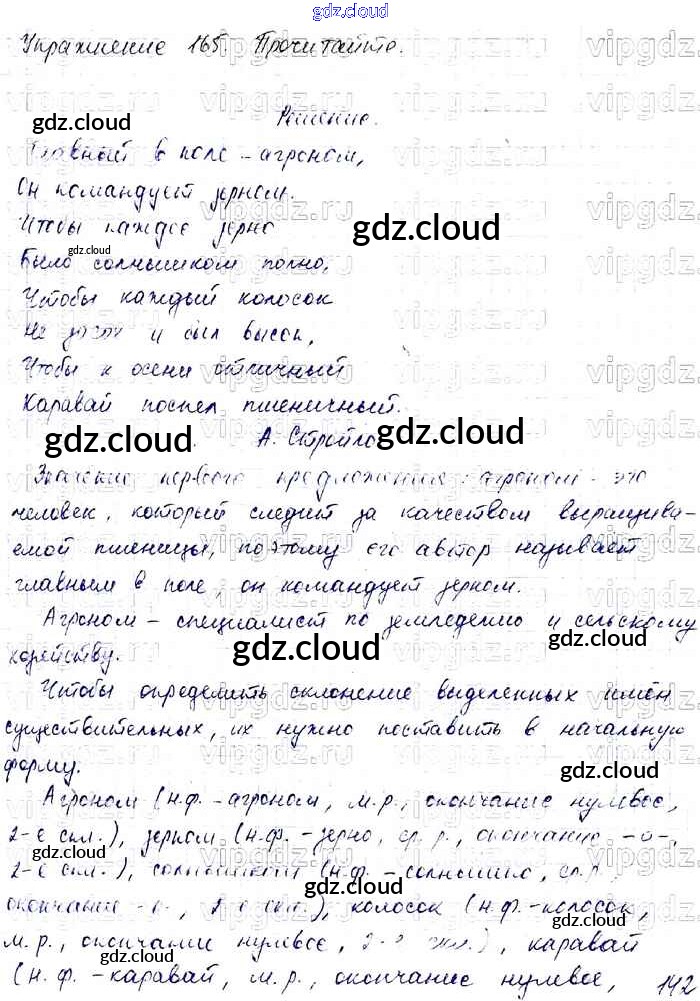 gdz.cloud
Упражнение 165. Прочитайте.
Решение.
gdz.cloud
Главный в поле - агроном,
Он командует зерном.
Чтобы каждое зерно
gdz.cloud
gdz.cloud
Было солнышком полно,
Чтобы каждый колосок
Не засох и был высок,
Чтобы к осени отличный
Каравай поспел пшеничный.
gdz.cloud А. Стройло gdz.cloud
Значение первого предложения: агроном - это
человек, который следит за качеством выращива-
емой пшеницы, поэтому его автор называет
главным в поле, он командует зерном.
Агроном - специалист по земледелию и сельскому
хозяйству.
gdz.cloud
gdz.cloud
Чтобы определить склонение выделенных имён
существительных, их нужно поставить в начальную
форму.
gdz.cloud
Агроном (н.ф. - агроном, м.р., окончание нулевое,
2-е скл.), зерном (н.ф. - зерно, ср. р., окончание -о-,
gdz.cloud
2-е скл.), солнышком (н.ф. - солнышко, ср.р.,
gdz.cloud
окончание -о-, 2-е скл.), колосок (н.ф. - колосок,
м.р., окончание нулевое, 2-е скл.), каравай
gdz.cloud
gdz.cloud
(н.ф. - каравай, м.р., окончание нулевое,
142